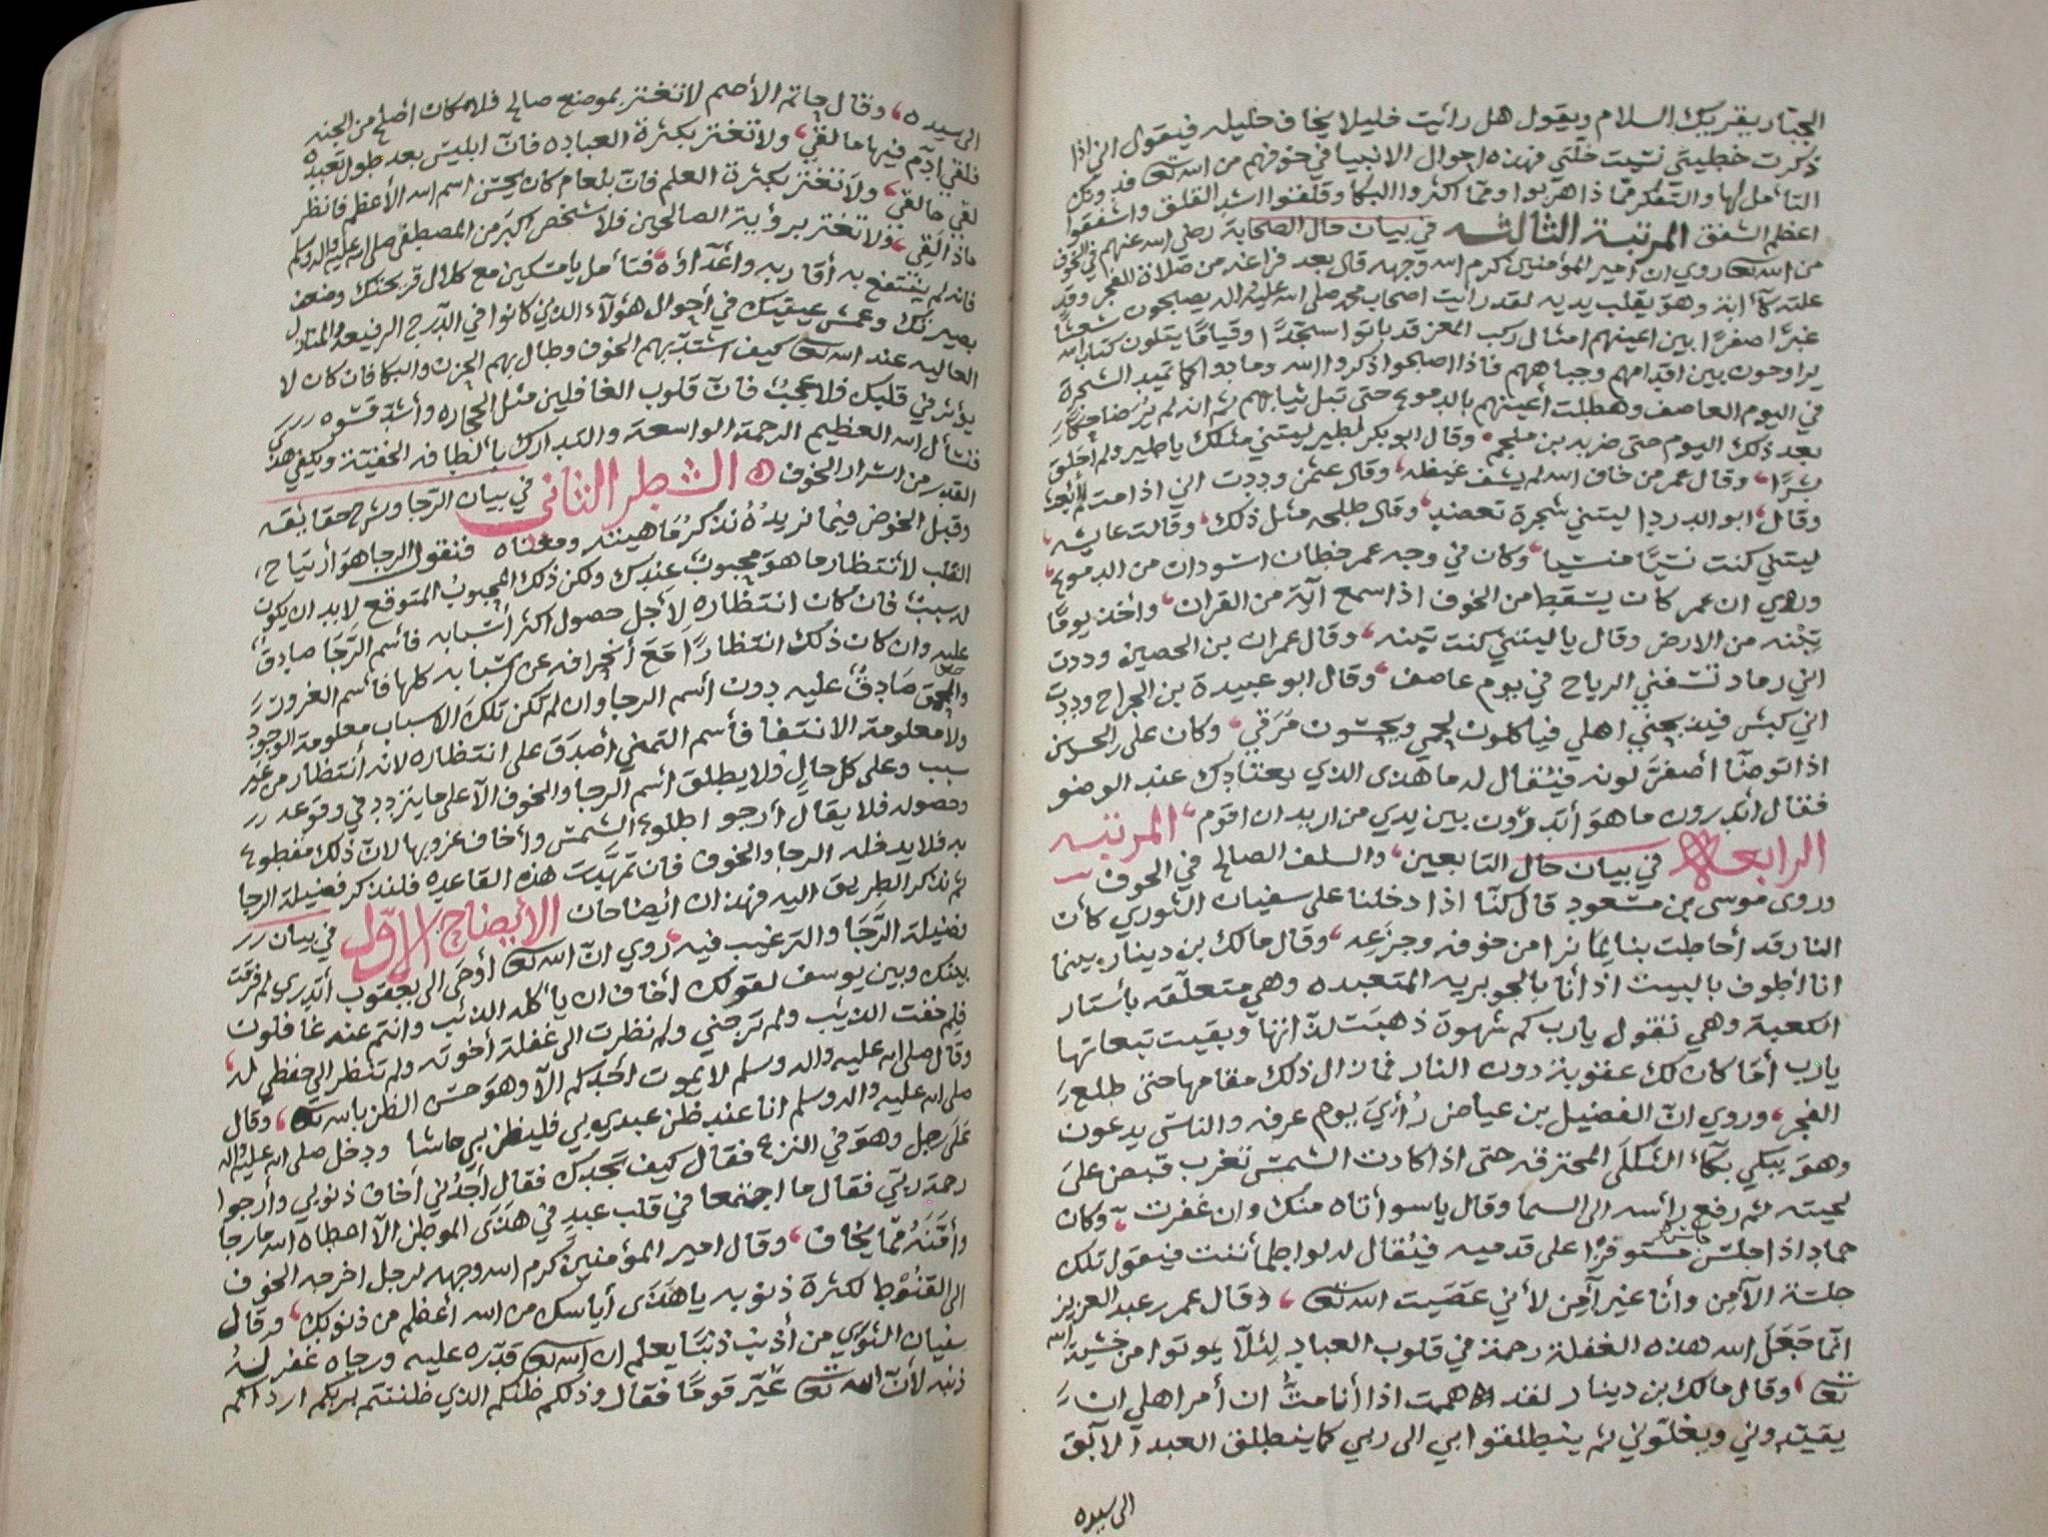 الجبار يقريك السلام ويقول هل رأيت خليلا يخاف خليله فيقول اني اذا
ذكرت خطيئتي نسيت خلتي فهذه احوال الانبيا في خوفهم من الله تعا فدونك
التأمل لها والتفكر مما ذا هربوا ومما اكثروا البكا وقلقوا اشد القلق واشفقوا
اعظم الشفق المرتبة الثالثه في بيان حال الصحابة رضي الله عنهم في الخوف
من الله تعا روي ان امير المؤمنين كرم الله وجهه قال بعد فراغه من صلاة الفجر وقد
علته كآبة وهو يقلب يديه لقد رايت اصحاب محمد صلى الله عليه واله يصبحون شعثا
غبرًا صفرًا بين اعينهم امثال ركب المعز قد باتوا سجدًا وقيامًا يتلون كتاب الله
يراوحون بين اقدامهم وجباههم فاذا اصبحوا ذكروا الله ومادوا كما تميد الشجرة
في اليوم العاصف وهطلت أعينهم بالدموع حتى تبل ثيابهم ثم انه لم ير ضاحكًا
بعد ذلك اليوم حتى ضربه بن ملجم وقال ابو بكر لطير ليتني مثلك ياطير ولم أخلق
بشرًا وقال عمر من خاف الله لم يشف غيظه وقال عثمن وددت اني اذا مت لم أبعث
وقال ابو الدردا ليتني شجرة تعضد وقال طلحه مثل ذلك وقالت عايشه
ليتني كنت نسيًا منسيا وكان في وجه عمر خطان اسودان من الدموع
وروي ان عمر كان يسقط من الخوف اذا سمع آية من القران وأخذ يومًا
تبنه من الارض وقال ياليتني كنت تبنه وقال عمران بن الحصين وددت
اني رماد تنسفني الرياح في يوم عاصف وقال ابو عبيدة بن الجراح وددت
اني كبش فيذبحني اهلي فياكلون لحمي ويحسون مرقي وكان علي بن الحسين
اذا توضأ أصفر لونه فيُقال له ما هذى الذي يعتادك عند الوضو
فقال أتدرون ما هو أتدرون بين يدي من اريد ان اقوم المرتبه
الرابعه في بيان حال التابعين والسلف الصالح في الخوف
وروى موسى بن مسعود قال كنا اذا دخلنا على سفيان الثوري كأن
النار قد أحاطت بنا لما نرا من خوفه وجزعه وقال مالك بن دينار بينما
انا أطوف بالبيت اذ أنا بالجويريه المتعبده وهي متعلقه بأستار
الكعبة وهي تقول يارب كم شهوة ذهبت لذاتها وبقيت تبعاتها
يارب أما كان لك عقوبة دون النار فما زال ذلك مقامها حتى طلع
الفجر وروي ان الفضيل بن عياض رُأي يوم عرفه والناس يدعون
وهو يبكي بكاء الثكلى المحترقه حتى اذا كادت الشمس تغرب قبض على
لحيته ثم رفع رأسه الى السما وقال ياسوأتاه منك وان غفرت وكان
حماد اذا جلس مستوفزًا على قدميه فيُقال له لو اطمأننت فيقول تلك
جلسة الآمن وأنا غير آمن لأني عصيت الله تعا وقال عمر بن عبد العزيز
انما جعل الله هذه الغفلة رحمة في قلوب العباد لئلا يموتوا من خشية الله
تعا وقال مالك بن دينار لقد هممت اذا أنا مت ان أمر اهلي ان
يقيدوني ويغلوني ثم ينطلقوا بي الى ربي كما ينطلق العبد الآبق
الى سيده
الى سيده وقال حاتم الأصم لا تغتر بموضع صالح فلا مكان أصلح من الجنه
فلقي آدم فيها ما لقي ولا تغتر بكثرة العباده فان ابليس بعد طول تعبده
لقي ما لقي ولا تغتر بكثرة العلم فان بلعام كان يحسن اسم الله الأعظم فانظر
ماذا لقي ولا تغتر برؤية الصالحين فلا شخص اكبر من المصطفى صلى الله عليه واله وسلم
فانه لم ينتفع به أقاربه وأعدآؤه فتأمل يا مسكين مع كلال قريحتك وضعف
بصيرتك وعمش عينيك في أحوال هؤلآء الذين كانوا في الدرج الرفيعه والمنازل
العاليه عند الله تعا كيف اشتد بهم الخوف وطال بهم الحزن والبكا فان كان لا
يؤثر في قلبك فلا عجب فان قلوب الغافلين مثل الحجاره وأشد قسوه
فنسأل الله العظيم الرحمة الواسعة والتدارك بألطافه الخفية ويكفي هذا
القدر من اسرار الخوف الشطر الثاني في بيان الرجا وشرح حقائقه
وقبل الخوض فيما نريده نذكر ماهيته ومعناه فنقول الرجا هو أرتياح
القلب لأنتظار ما هو محبوب عندك ولكن ذلك المحبوب المتوقع لا بد ان يكون
له سبب فان كان انتظاره لأجل حصول اكثر أسبابه فأسم الرجا صادق
عليه وان كان ذلك انتظارًا مع أنخرافه عن اسبابه كلها فأسم الغرور
والحمق صادق عليه دون اسم الرجا وان لم تكن تلك الاسباب معلومة الوجود
ولا معلومة الانتفا فأسم التمني أصدق على انتظاره لانه أنتظار من غير
سبب وعلى كل حالٍ ولا يطلق أسم الرجا والخوف الآ على ما يتردد في وقوعه
وحصوله فلا يقال أرجو اطلوع الشمس وأخاف غروبها لان ذلك مقطوع
به فلا يدخله الرجا والخوف فان تمهدت هذه القاعده فلنذكر فضيلة الرجا
ثم نذكر الطريق اليه فهذان أيضاحان الأيضاح الاول في بيان
فضيلة الرجا والترغيب فيه روي ان الله تعا أوحى الى يعقوب أتدري لم فرقت
بينك وبين يوسف لقولك أخاف ان يأكله الذئب وانتم عنه غافلون
فلم خفت الذئب ولم ترجني ولم نظرت الى غفلة أخوته ولم تنظر الى حفظي له
وقال صلى الله عليه واله وسلم لا يموت أحدكم الآ وهو حسن الظن بالله تعا وقال
صلى الله عليه واله وسلم انا عند ظن عبدي بي فليظن بي ماشا ودخل صلى الله عليه واله
على رجل وهو في النزع فقال كيف تجدك فقال أجدني أخاف ذنوبي وأرجوا
رحمة ربي فقال ما اجتمعا في قلب عبدٍ في هذى الموطن الآ اعطاه الله ما رجا
وأمنه مما يخاف وقال امير المؤمنين كرم الله وجهه لرجل اخرجه الخوف
الى القنوط لكثرة ذنوبه يا هذى أياسك من الله أعظم من ذنوبك وقال
سفيان الثوري من أذنب ذنبًا يعلم ان الله تعا قدره عليه ورجاه غفر له
ذنبه لأن الله تعا عير قومًا فقال وذلكم ظنكم الذي ظننتم بربكم ارداكم